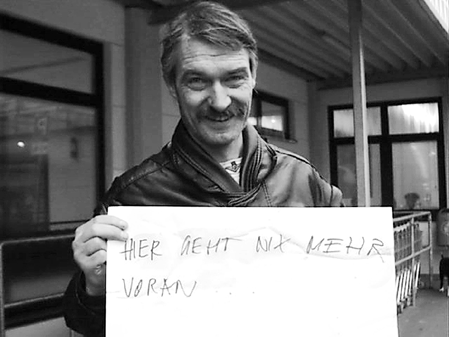 HIER GEHT NIX MEHR
VORAN ...